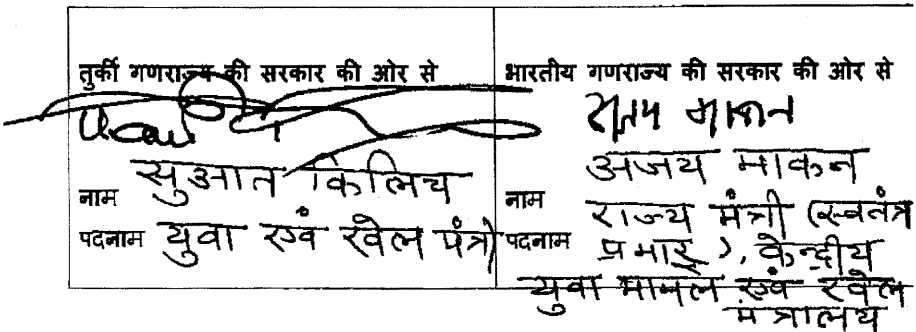 तुर्की गणराज्य की सरकार की ओर से
सुआत किलिच
नाम
पदनाम युवा एवं खेल मंत्री
भारतीय गणराज्य की सरकार की ओर से
अजय माकन
अजय माकन
नाम
राज्य मंत्री (स्वतंत्र
पदनाम प्रभार), केन्द्रीय
युवा मामले एवं खेल
मंत्रालय